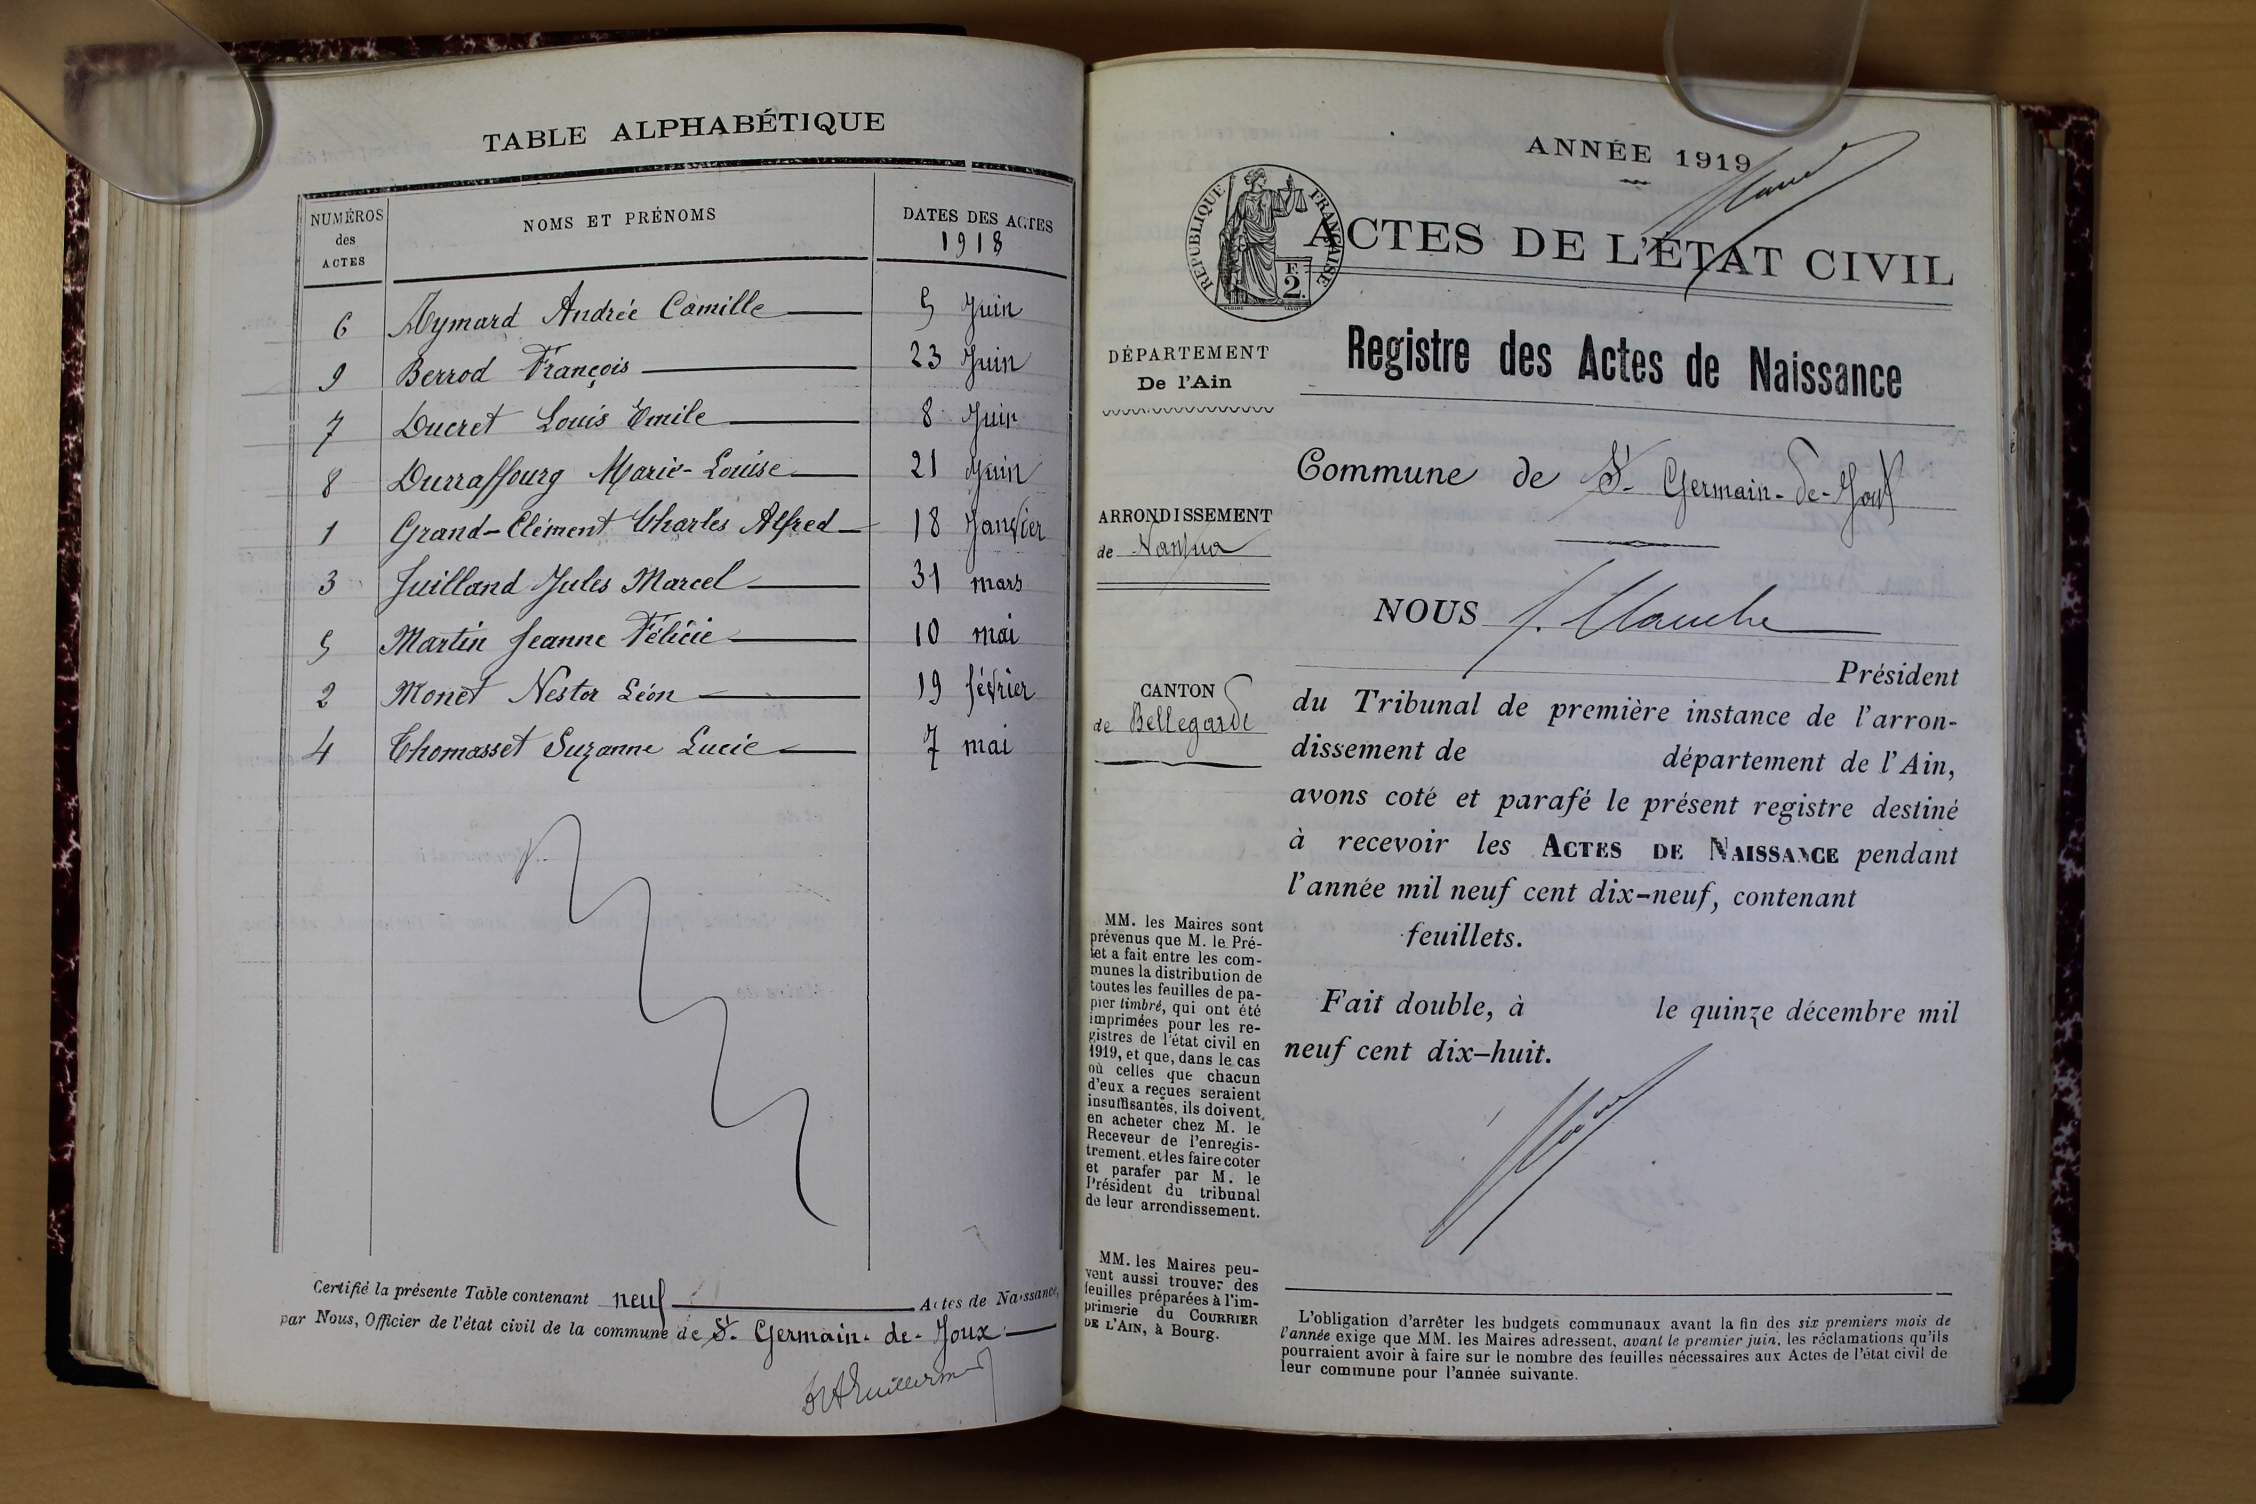 TABLE ALPHABÉTIQUE
NUMÉROS des ACTES
NOMS ET PRÉNOMS
DATES DES ACTES
1918
6 Aymard Andrée Camille 5 Juin
9 Berrod François 23 Juin
7 Ducret Louis Emile 8 Juin
8 Durraffourg Marie-Louise 21 Juin
1 Grand-Clément Charles Alfred 18 Janvier
3 Juilland Jules Marcel 31 mars
5 Martin Jeanne Félicie 10 mai
2 Monet Nestor Léon 19 février
4 Thomasset Suzanne Lucie 7 mai
Certifié la présente Table contenant neuf Actes de Naissance,
par Nous, Officier de l'état civil de la commune de St- Germain-de-Joux
ANNÉE 1919
RÉPUBLIQUE FRANÇAISE
F.
2.
ACTES DE L'ÉTAT CIVIL
Registre des Actes de Naissance
DÉPARTEMENT
De l'Ain
Commune de St- Germain-de-Joux
ARRONDISSEMENT
de Nantua
NOUS
Président
CANTON
de Bellegarde
du Tribunal de première instance de l'arron-
dissement de département de l'Ain,
avons coté et parafé le présent registre destiné
à recevoir les ACTES DE NAISSANCE pendant
l'année mil neuf cent dix-neuf, contenant
feuillets.
Fait double, à le quinze décembre mil
neuf cent dix-huit.
MM. les Maires sont
prévenus que M. le Pré-
fet a fait entre les com-
munes la distribution de
toutes les feuilles de pa-
pier timbré, qui ont été
imprimées pour les re-
gistres de l'état civil en
1919, et que, dans le cas
où celles que chacun
d'eux a reçues seraient
insuffisantes, ils doivent
en acheter chez M. le
Receveur de l'enregis-
trement, et les faire coter
et parafer par M. le
Président du tribunal
de leur arrondissement.
MM. les Maires peu-
vent aussi trouver des
feuilles préparées à l'im-
primerie du COURRIER
DE L'AIN, à Bourg.
L'obligation d'arrêter les budgets communaux avant la fin des six premiers mois de
l'année exige que MM. les Maires adressent, avant le premier juin, les réclamations qu'ils
pourraient avoir à faire sur le nombre des feuilles nécessaires aux Actes de l'état civil de
leur commune pour l'année suivante.